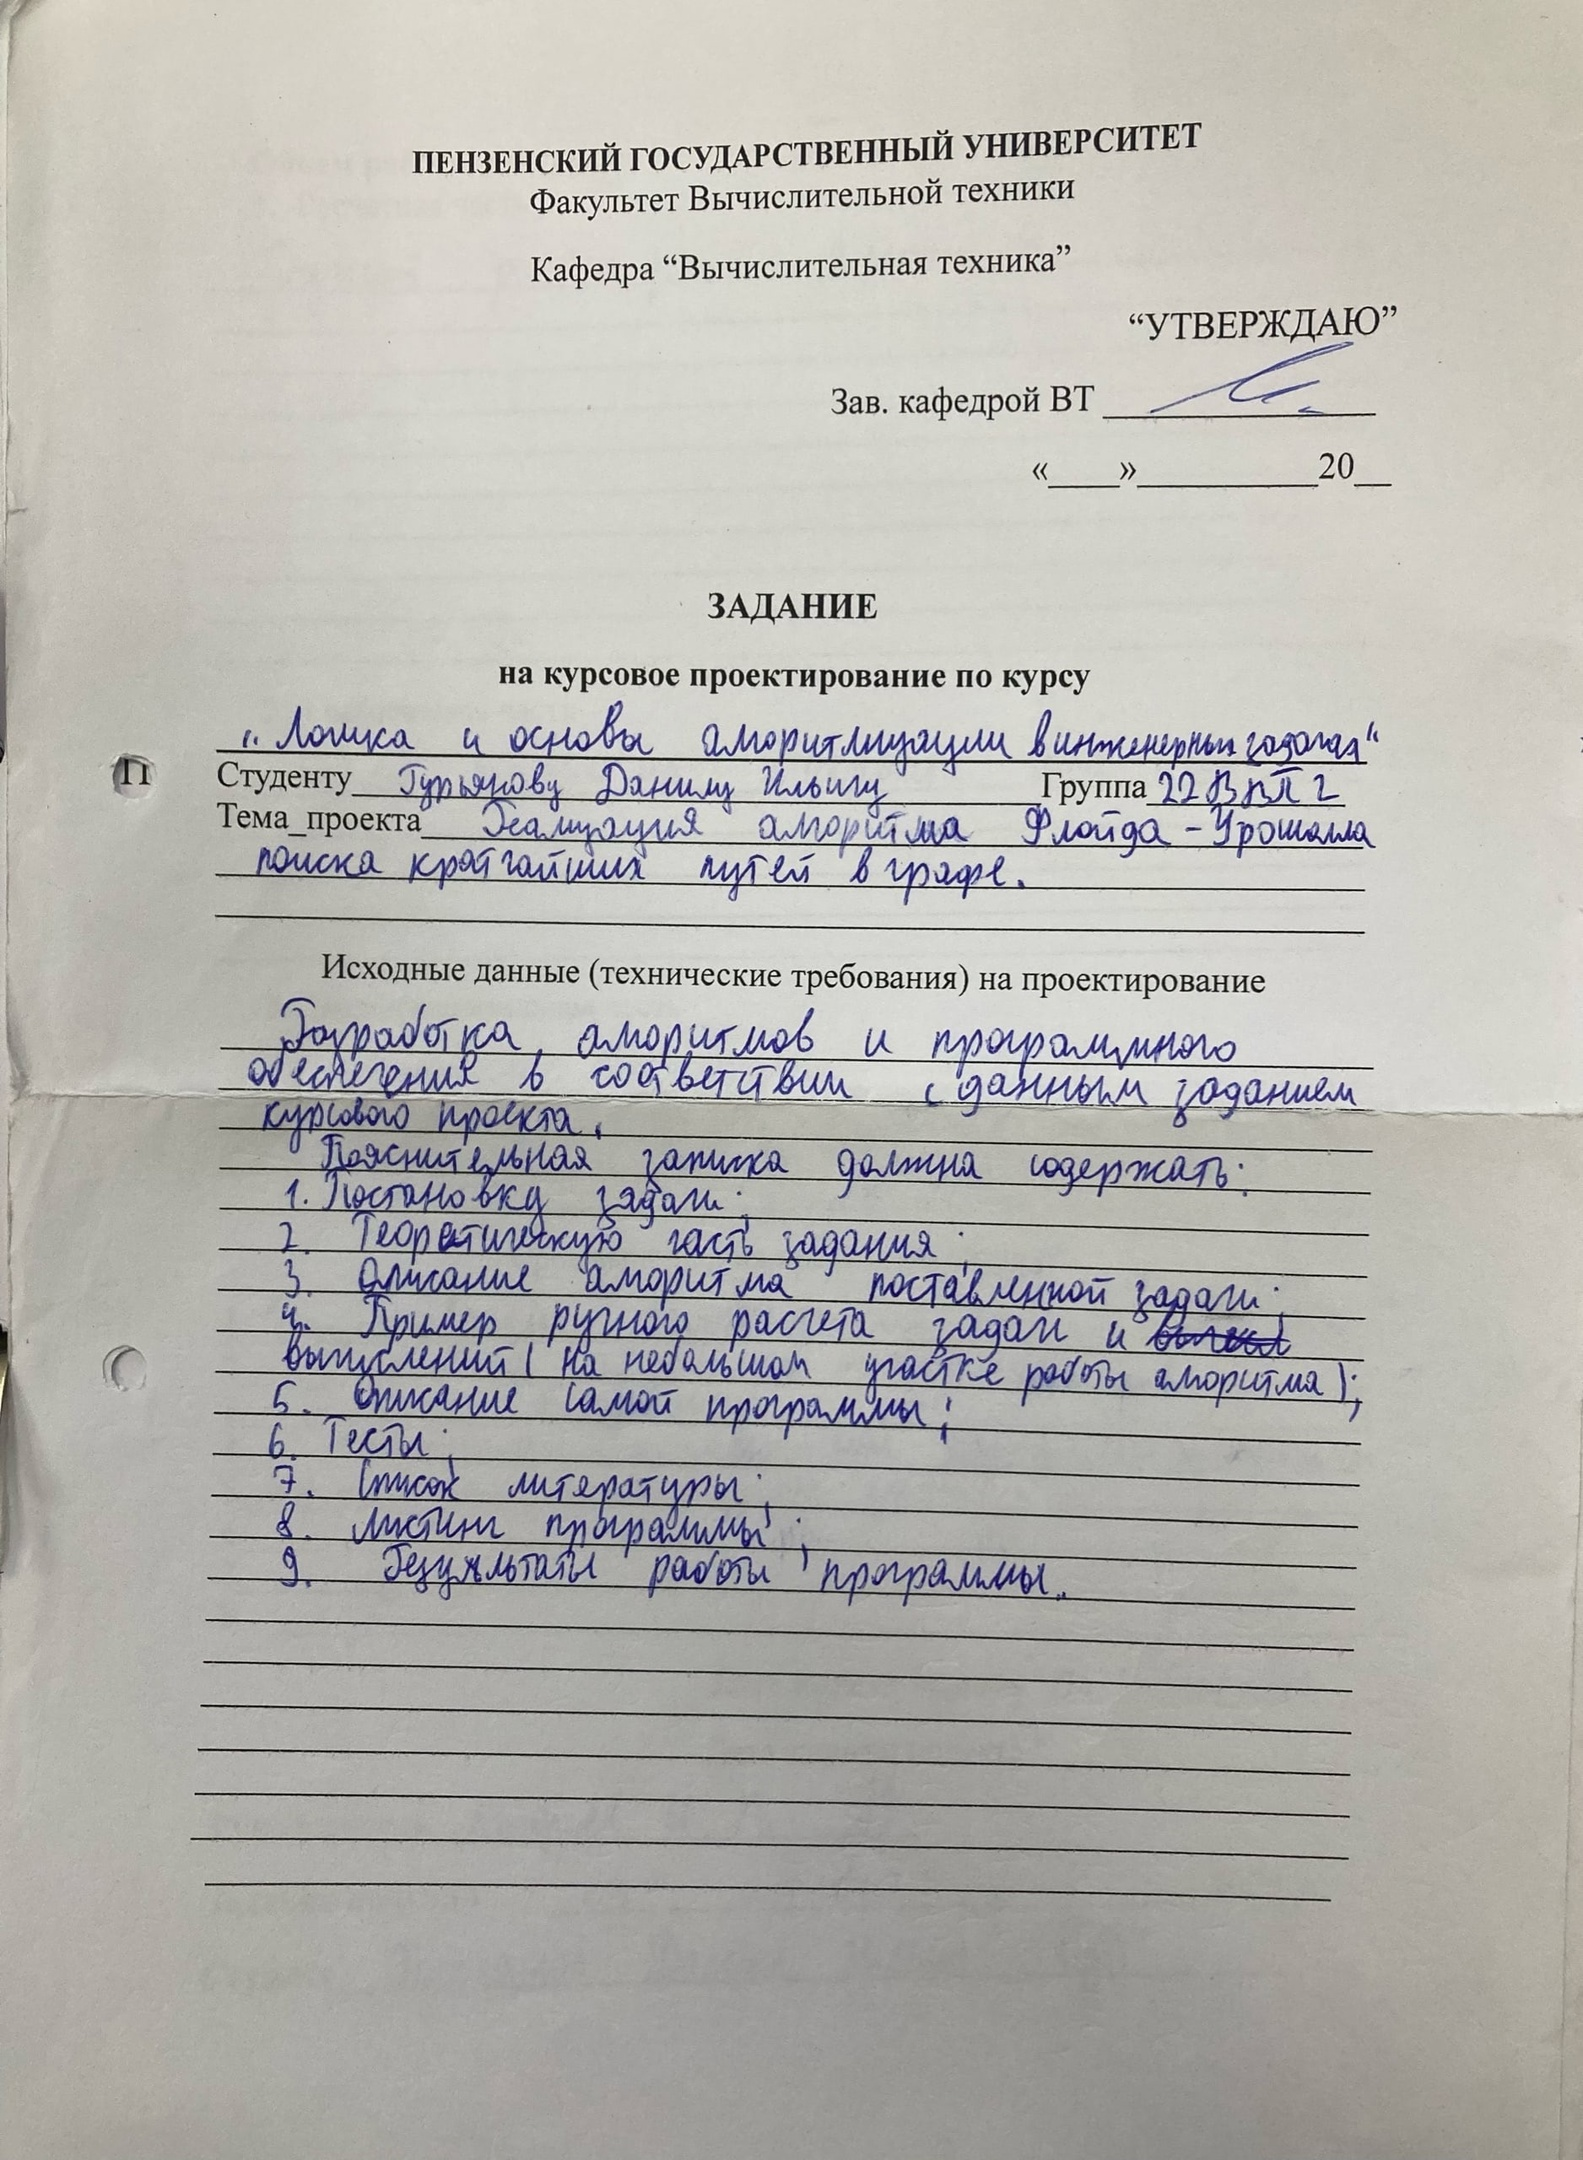 ПЕНЗЕНСКИЙ ГОСУДАРСТВЕННЫЙ УНИВЕРСИТЕТ
Факультет Вычислительной техники
Кафедра “Вычислительная техника”
“УТВЕРЖДАЮ”
Зав. кафедрой ВТ
«____»__________20__
ЗАДАНИЕ
на курсовое проектирование по курсу
„Логика и основы алгоритмизации в инженерных задачах“
П
Студенту Гурьянову Данилу Ильичу Группа 22ВВП2
Тема_проекта Реализация алгоритма Флойда - Уоршелла
поиска кратчайших путей в графе.
Исходные данные (технические требования) на проектирование
Разработка алгоритмов и программного
обеспечения в соответствии с данным заданием
курсового проекта.
Пояснительная записка должна содержать:
1. Постановку задачи;
2. Теоретическую часть задания;
3. Описание алгоритма поставленной задачи;
4. Пример ручного расчета задачи и
вычислений (на небольшом участке работы алгоритма);
5. Описание самой программы;
6. Тесты;
7. Список литературы;
8. Листинг программы;
9. Результаты работы программы.